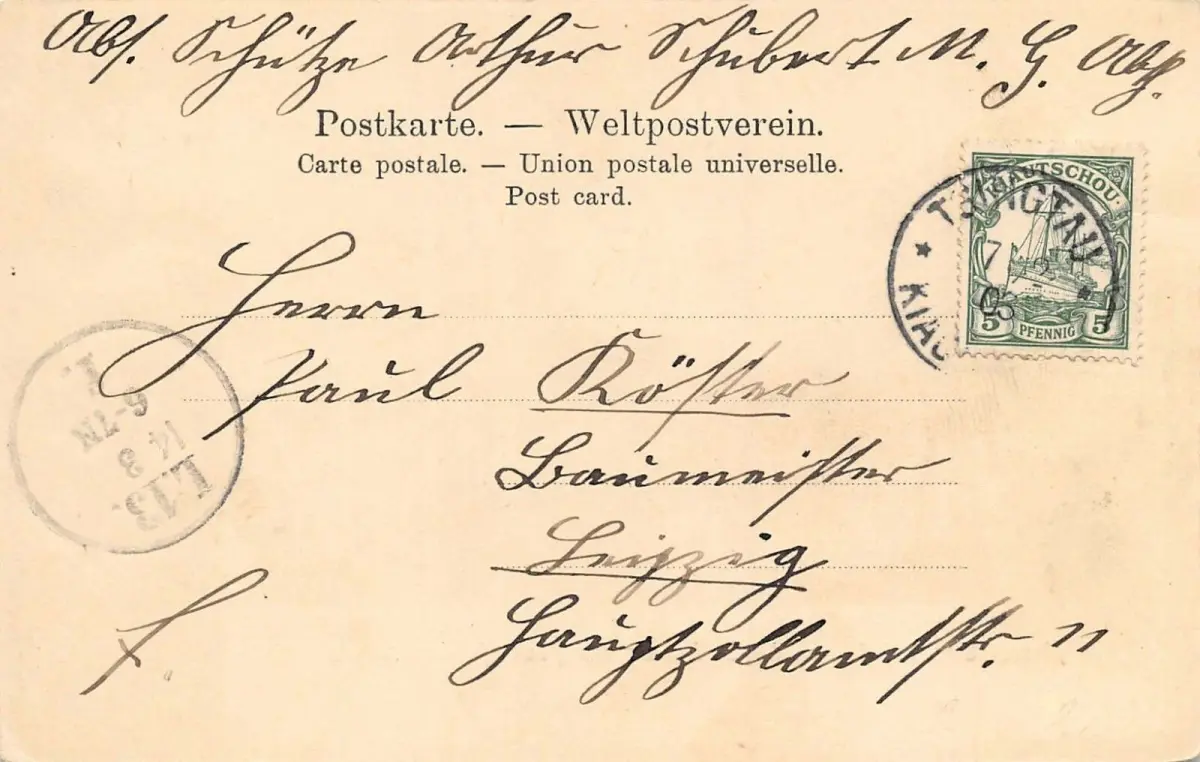 Abs. Schütze Arthur Schubert M. G. Abt.
Postkarte. — Weltpostverein.
Carte postale. — Union postale universelle.
Post card.
KIAUTSCHOU
5 PFENNIG 5
TSINGTAU
7 2
03
KIAU
Herrn
Paul Köster
Baumeister
Leipzig
Hauptzollamtstr. 11
L.13.
14 3
6-7N
1.
f.